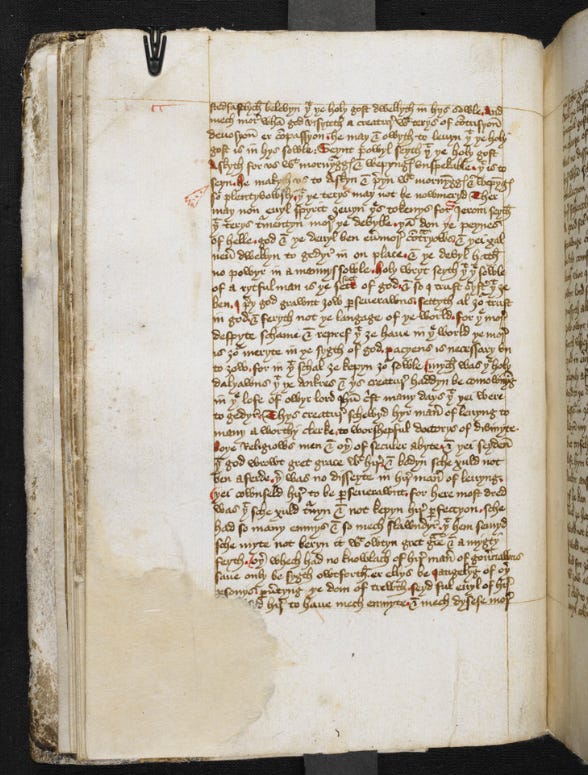 stedfastlych belevyn yͭ ye holy gost dwellyth in hys sowle. And
mech mor whā god visyteth a creatur wͭ terys of cōtrisyon
deuosyon er cōpassyon he may & owyth to leuyn yͭ ye holy
gost is in hys sowle. Seynt powyl seyth yͭ ye holy gost
Askyth for vs wͭ mornyngḡ & wepynḡ vnspekable. yͭ is to
seyn. he makyth vs to Askyn & p̄yn wͭ mornyngḡ & wepynḡ
so plentyvowsly. yͭ ye terys may not be nowmeryd. Ther
may non euyl spyrit zeuyn yes tokenys. for Jerom seyth
yͭ terys t̄mentyn mor ye devylle. yā don ye peynes
of helle. god & ye deuyl ben eu̾mor cōt̾ryows & yei xal
neu̾ dwellyn to gedyr in on place. & ye devyl hath
no powyr in a mannys sowle. Holy wryt seyth yͭ ye sowle
of a rytful man is ye sete of god. & so I trust syst̾ yͭ ze
ben. I p̄y god grawnt zow p̱seuerawns. settyth al zor trust
in god & feryth not ye langage of ye world. for ye mor
despyte schame & repref yͭ ze haue in ye world ye mor
is zor meryte in ye sygth of god. pacyens is necessary vn
to zow. for in yͭ schal ze kepyn zor sowle. Mych was ye holy
dalyawns yͭ ye ankres & yis creatur haddyn be comownyng
in ye lofe of owyr lord Jhū c̾st many days yͭ yei were
to gedyr. Thys creatur schewyd hyr man̾ of leuyng to
many a worthy clerke. to worshepful doctorys of divinyte.
boye Religiows men & oy̾ of seculer abyte. & yei seydē
yͭ god wrowt gret grace wͭ hir & bodyn sche xuld not
ben aferde. y̾ was no disseyte in hir man̾ of leuyng.
yei cownseld hir to be p̱seuerawnt. for here most dred
was yͭ sche xuld t̄nyn & not kepyn hir p̱feccyon. sche
had so many enmys & so mech slawndyr. yͭ hem semyd
sche myte not beryn it wͭ owtyn gret grāe & a mygty
feyth. Oy̾ whech had no knowlach of hir man̾ of gou̾nawns
save only be sygth owtforth. er ellys be jangelyng of oy̾
p̱sonys p̱u̾tyng ye dom of trewth. seyd ful euyl of hir
hir to haue mech enmyte. & mech dysese mor